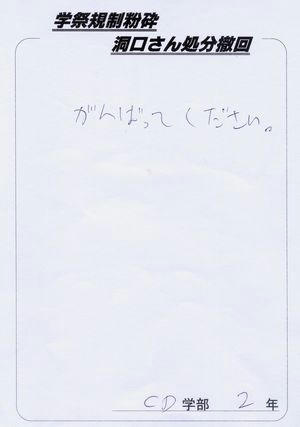 学祭規制粉砕
洞口さん処分撤回
がんばってください。
CD学部 2年